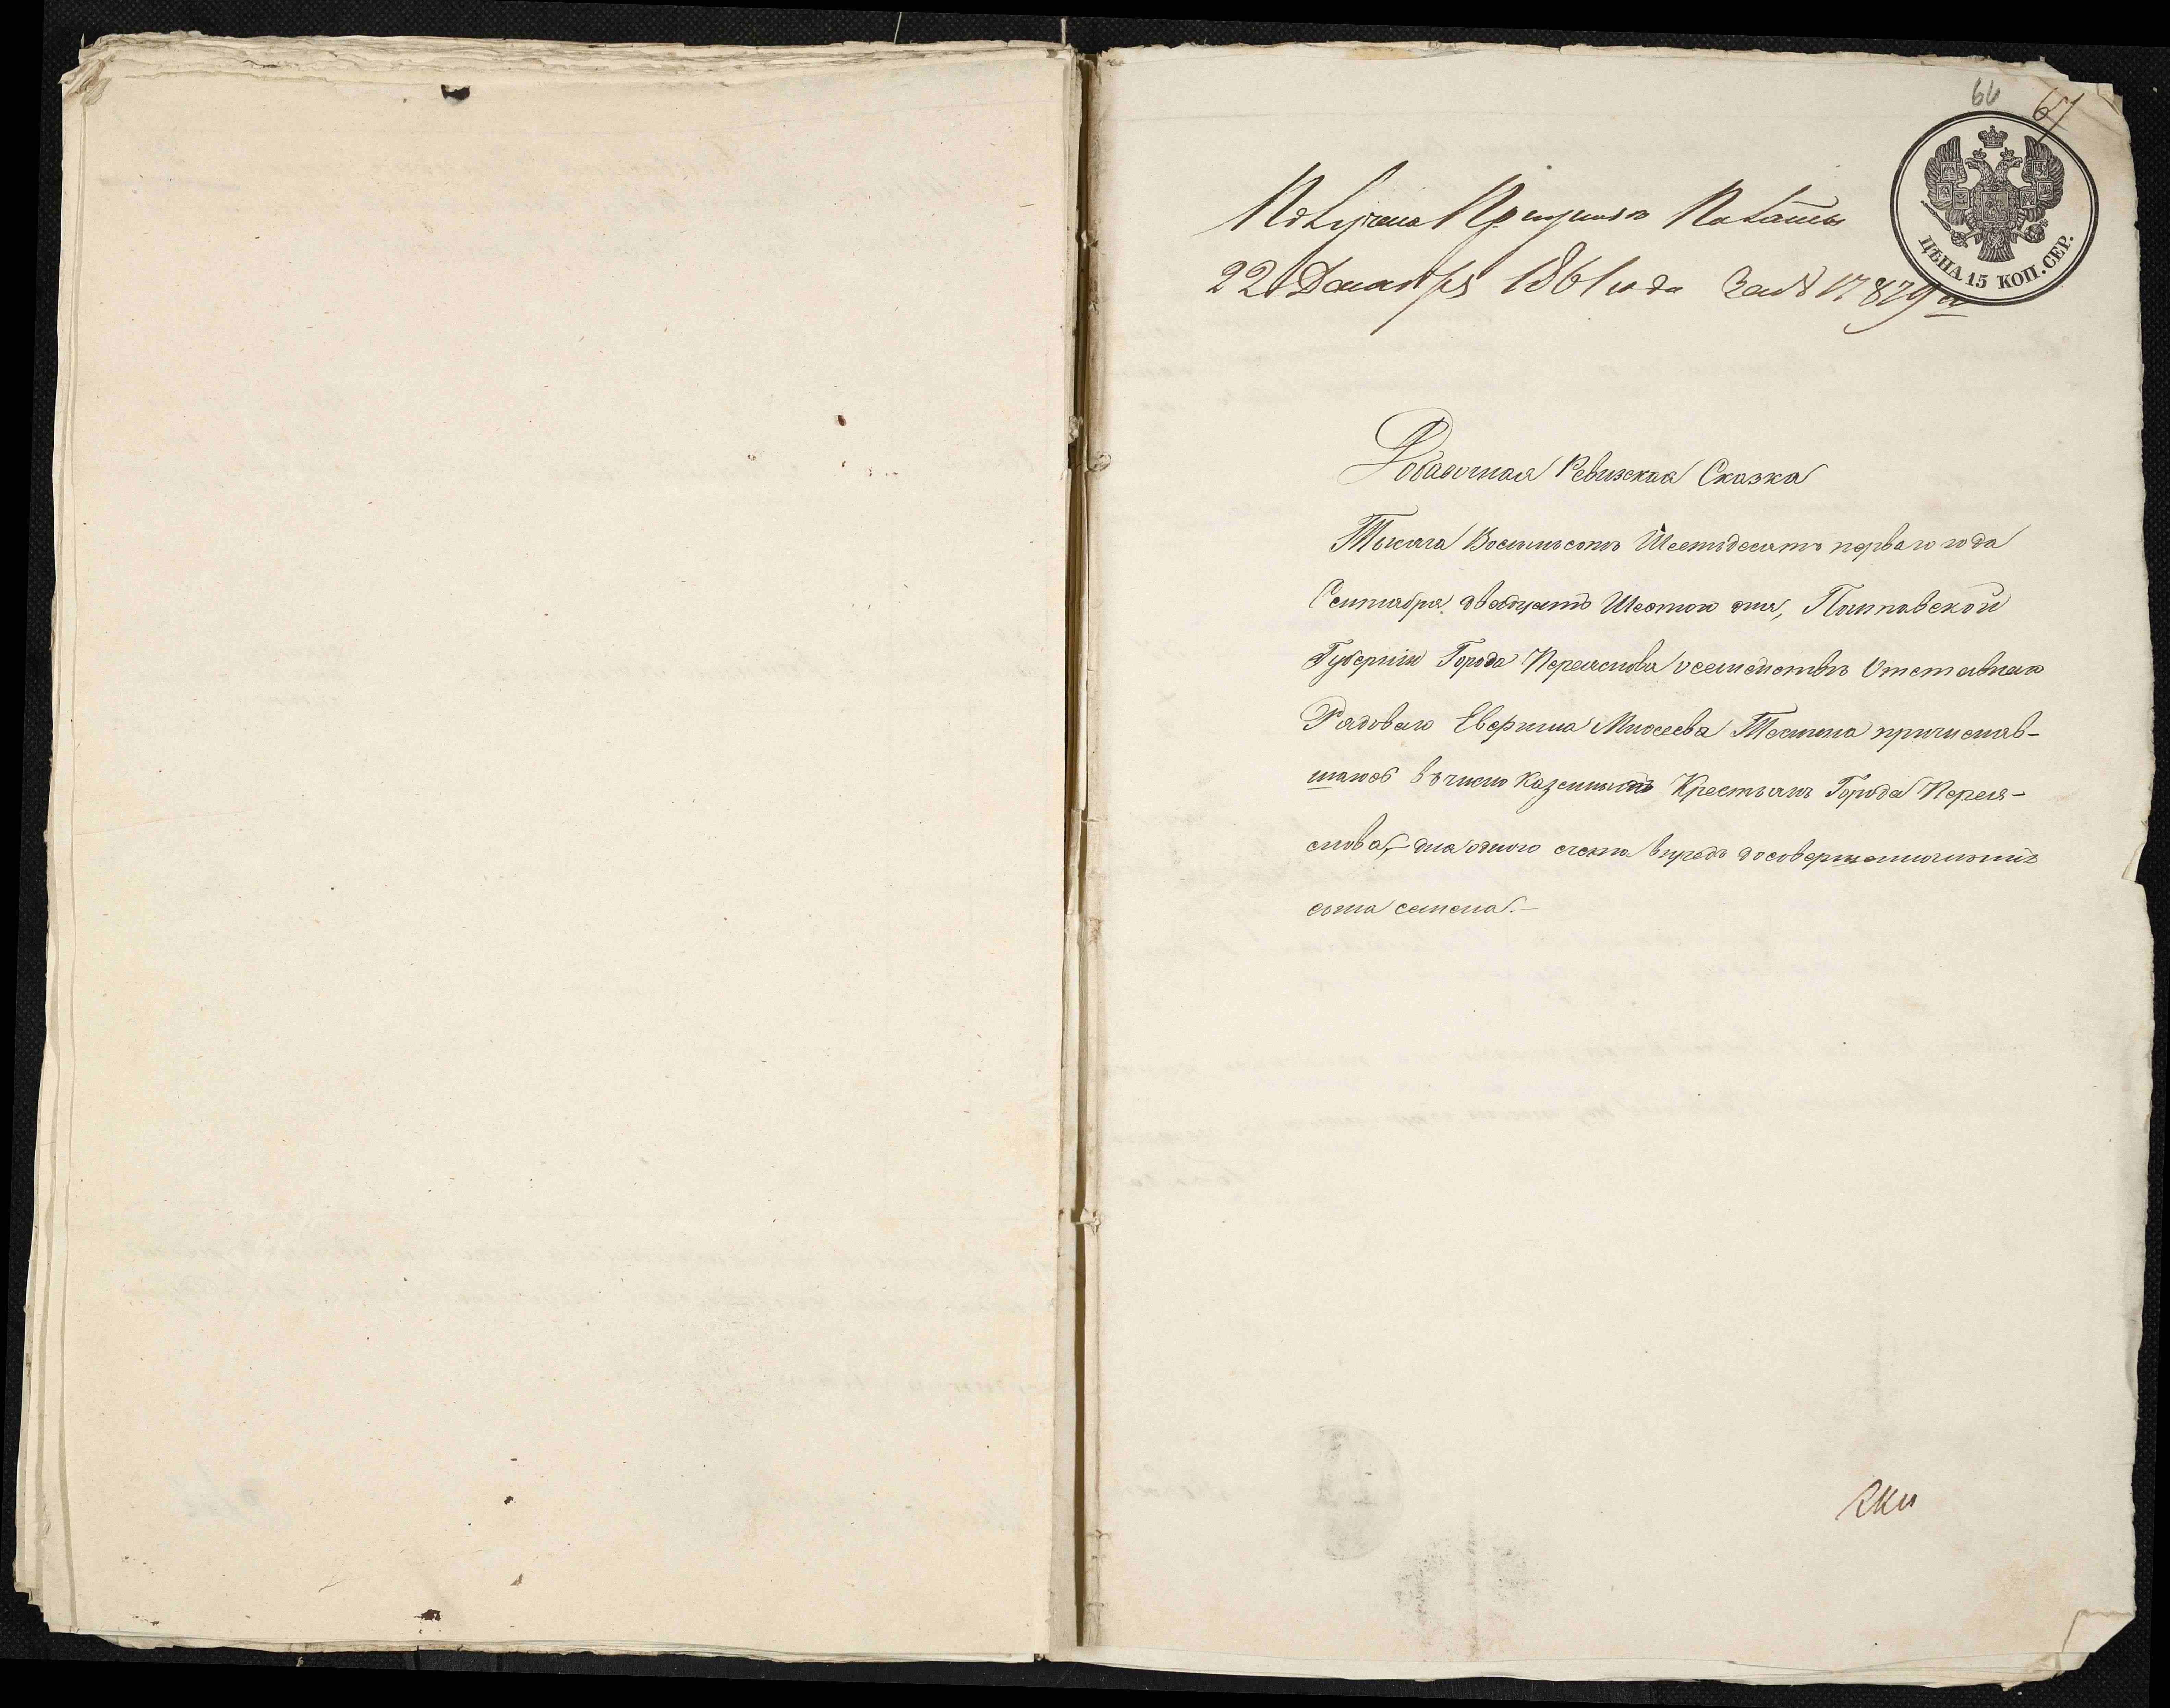 66
67
ЦѢНА 15 КОП. СЕР.
Получена при указѣ Палаты
22 Декабря 1861 года за № 17879 м
Добавочная Ревизская Сказка
Тысяча Восемьсотъ Шестьдесятъ перваго года
Сентября двадцать Шестого дня, Полтавской
Губерніи Города Переяслова о семействѣ Отставнаго
Рядоваго Мисеева причисляв-
шагося въ число казенныхъ Крестьянъ Города Перея-
слова, для одного счета впредь до совершеннолѣтія
сына Семена.